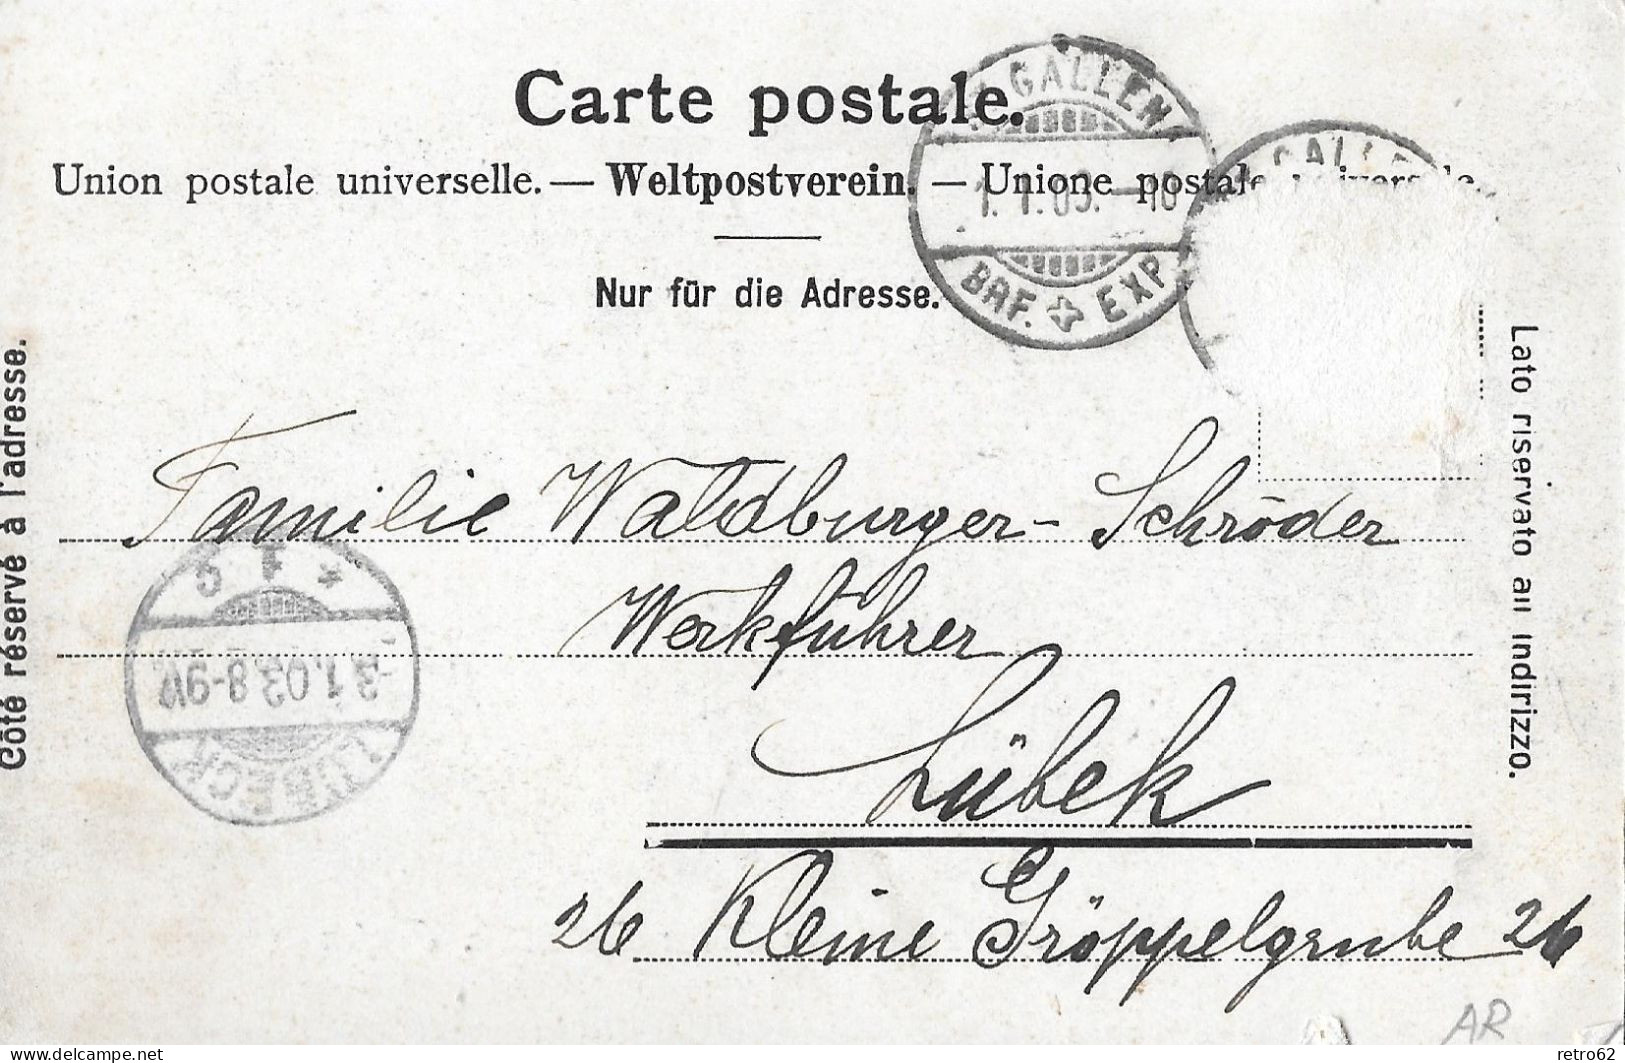 Carte postale.
Union postale universelle. — Weltpostverein. — Unione postale
Nur für die Adresse.
Côté réservé à l'adresse.
Lato riservato all'indirizzo.
GALLEN
1.1.03.-10
BRF. EXP.
GALLE
Familie Waldburger-Schröder
Werkführer
Lübek
26 Kleine Gröppelgrube 26
* 1 c
-3.1.03.8-9V.
LÜBECK
AR
delcampe.net
retro62